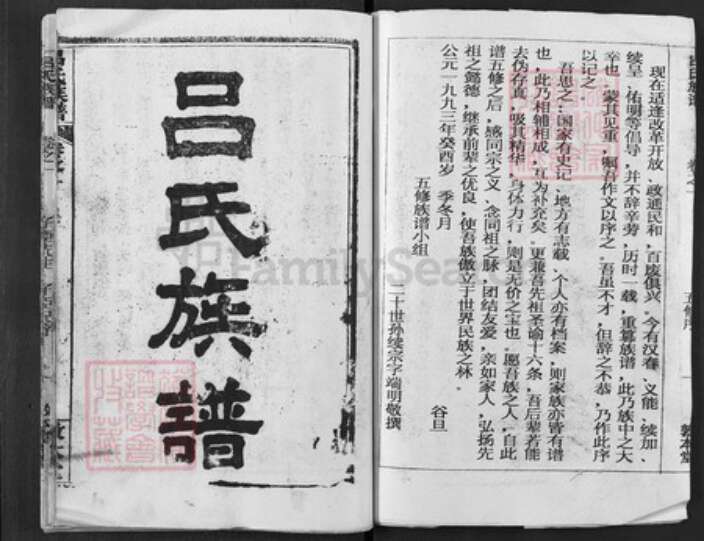 吕氏族譜
现在适逢改革开放、政通民和，百废俱兴。今有汉春、义能、续加、
续呈、佑明等倡导，并不辞辛劳，历时一载，重篡族谱，此乃族中之大
幸也。蒙其见重，嘱吾作文以序之。吾虽不才，但辞之不恭，乃作此序
以记之。
吾思之：国家有史记、地方有志载、个人亦有档案，则家族亦皆有谱
也，此乃相辅相成，互为补充矣。更兼吾先祖圣谕十六条，吾后辈若能
去伪存真，吸其精华，身体力行，则是无价之宝也。愿吾族之人，自此
谱五修之后，感同宗之义、念同祖之脉，团结友爱，亲如家人，弘扬先
祖之懿德，继承前辈之优良，使吾族傲立于世界民族之林。
公元一九九三年癸酉岁　季冬月　谷旦
五修族谱小组
二十世孙续宗字端明敬撰
五修序
敦本堂
FamilySearch